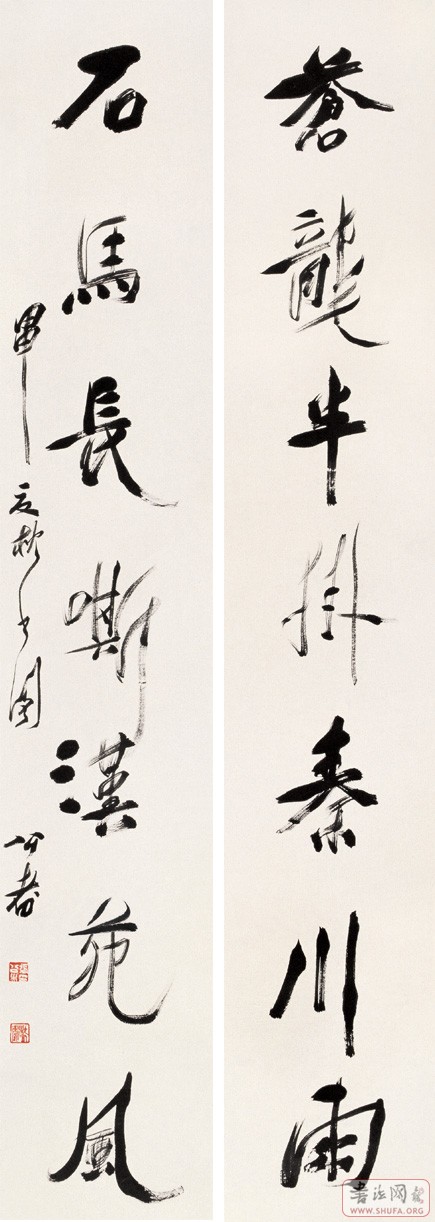 蒼龍半掛秦川雨
石馬長嘶漢苑風
甲
書法网
WWW.SHUFA.ORG